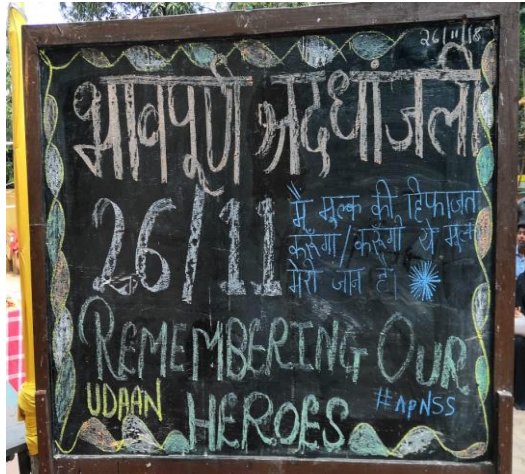 26/11/18
भावपूर्ण श्रद्धांजली
26/11
मैं मुल्क की हिफाजत
करूँगा/करूँगी ये मुल्क
मेरी जान है।
REMEMBERING OUR
UDAAN HEROES #APNSS